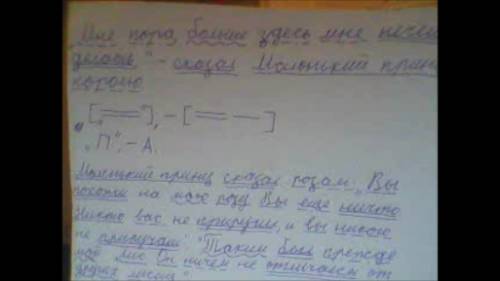 „Мне пора, больше здесь мне нечего
делать," - сказал Маленький принц
королю
„[═══"], - [═══ —]
„П", - А.
Маленький принц сказал розам: „Вы
похожи на мою розу Вы ещё ничто
Никто вас не приручил, и вы никого
не приручали. "Таким был прежде
мой Лис Он ничем не отличался от
других лисиц"